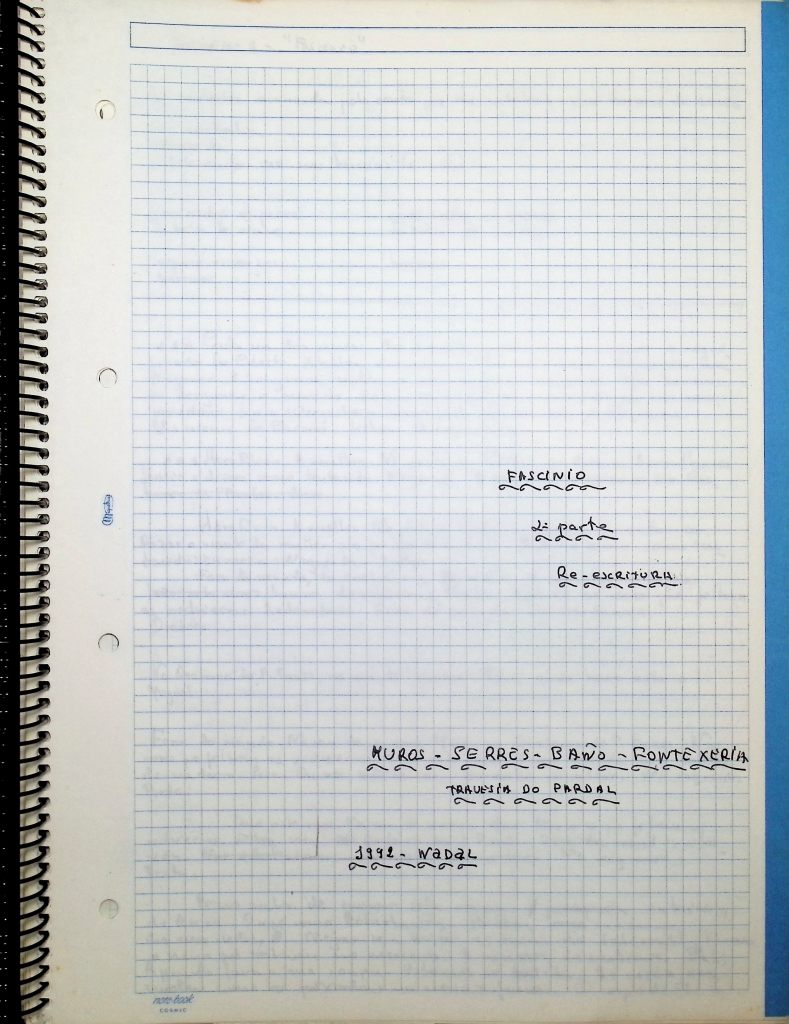 FASCINIO
2ª parte
Re-escritura
MUROS - SERRES - BAÑO - FONTEXERÍA
TRAVESÍA DO PARDAL
1992 - NADAL
note book
COSMIC